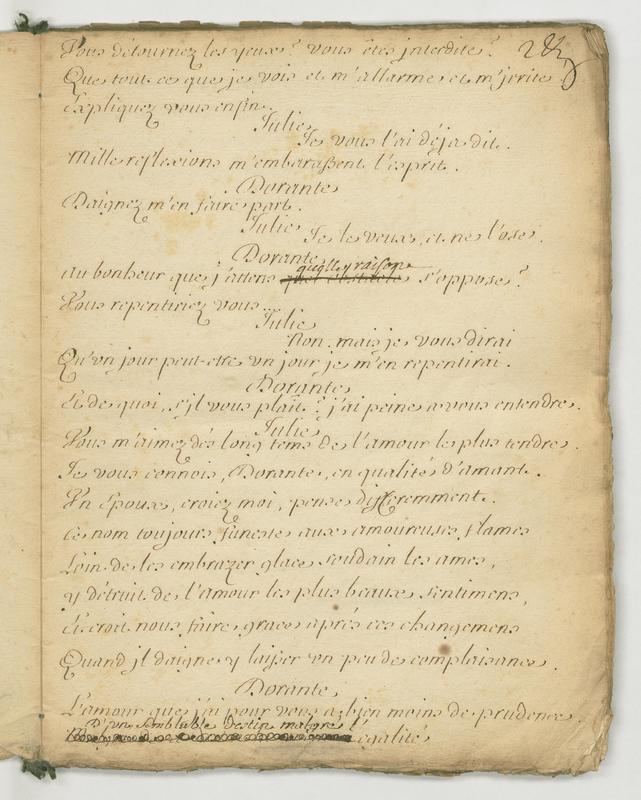 Vous détournez les yeux? vous êtes jnterdite?
Que tout ce que je vois et m'allarme et m'jrrite
Expliquez vous enfin.
Julie
Je vous l'ai déja dit.
Mille reflexions m'embarassent l'esprit.
Dorante
Daignez m'en faire part.
Julie
Je le veux, et ne l'ose.
Dorante
quelle raison
au bonheur que j'attens s'oppose?
Vous repentiriez vous...
Julie
Non. mais je vous dirai
Qu'un jour peut-etre un jour je m'en repentirai.
Dorante
Et de quoi, s'jl vous plaît? j'ai peine a vous entendre.
Julie
Vous m'aimez dès long tems de l'amour le plus tendre.
Je vous connois, Dorante, en qualité d'amant.
Un Epoux, croiez moi, pense differemment.
Ce nom toujours funeste aux amoureuses flames
Loin de les embrazer glace soudain les ames,
y détruit de l'amour les plus beaux sentimens,
Et croit nous faire grace après ces changemens
Quand jl daigne y laisser un peu de complaisance.
Dorante
L'amour que j'ai pour vous a bien moins de prudence.
D'un semblable destin malgré l'
egalité